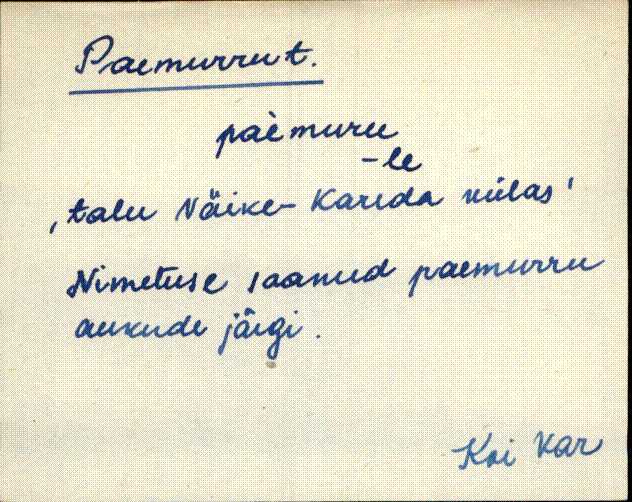 Paemurru t.
paèmuru
-le
‚talu Näike-Kareda külas'
Nimetuse saanud paemurru
aukude järgi.
Koi Kar